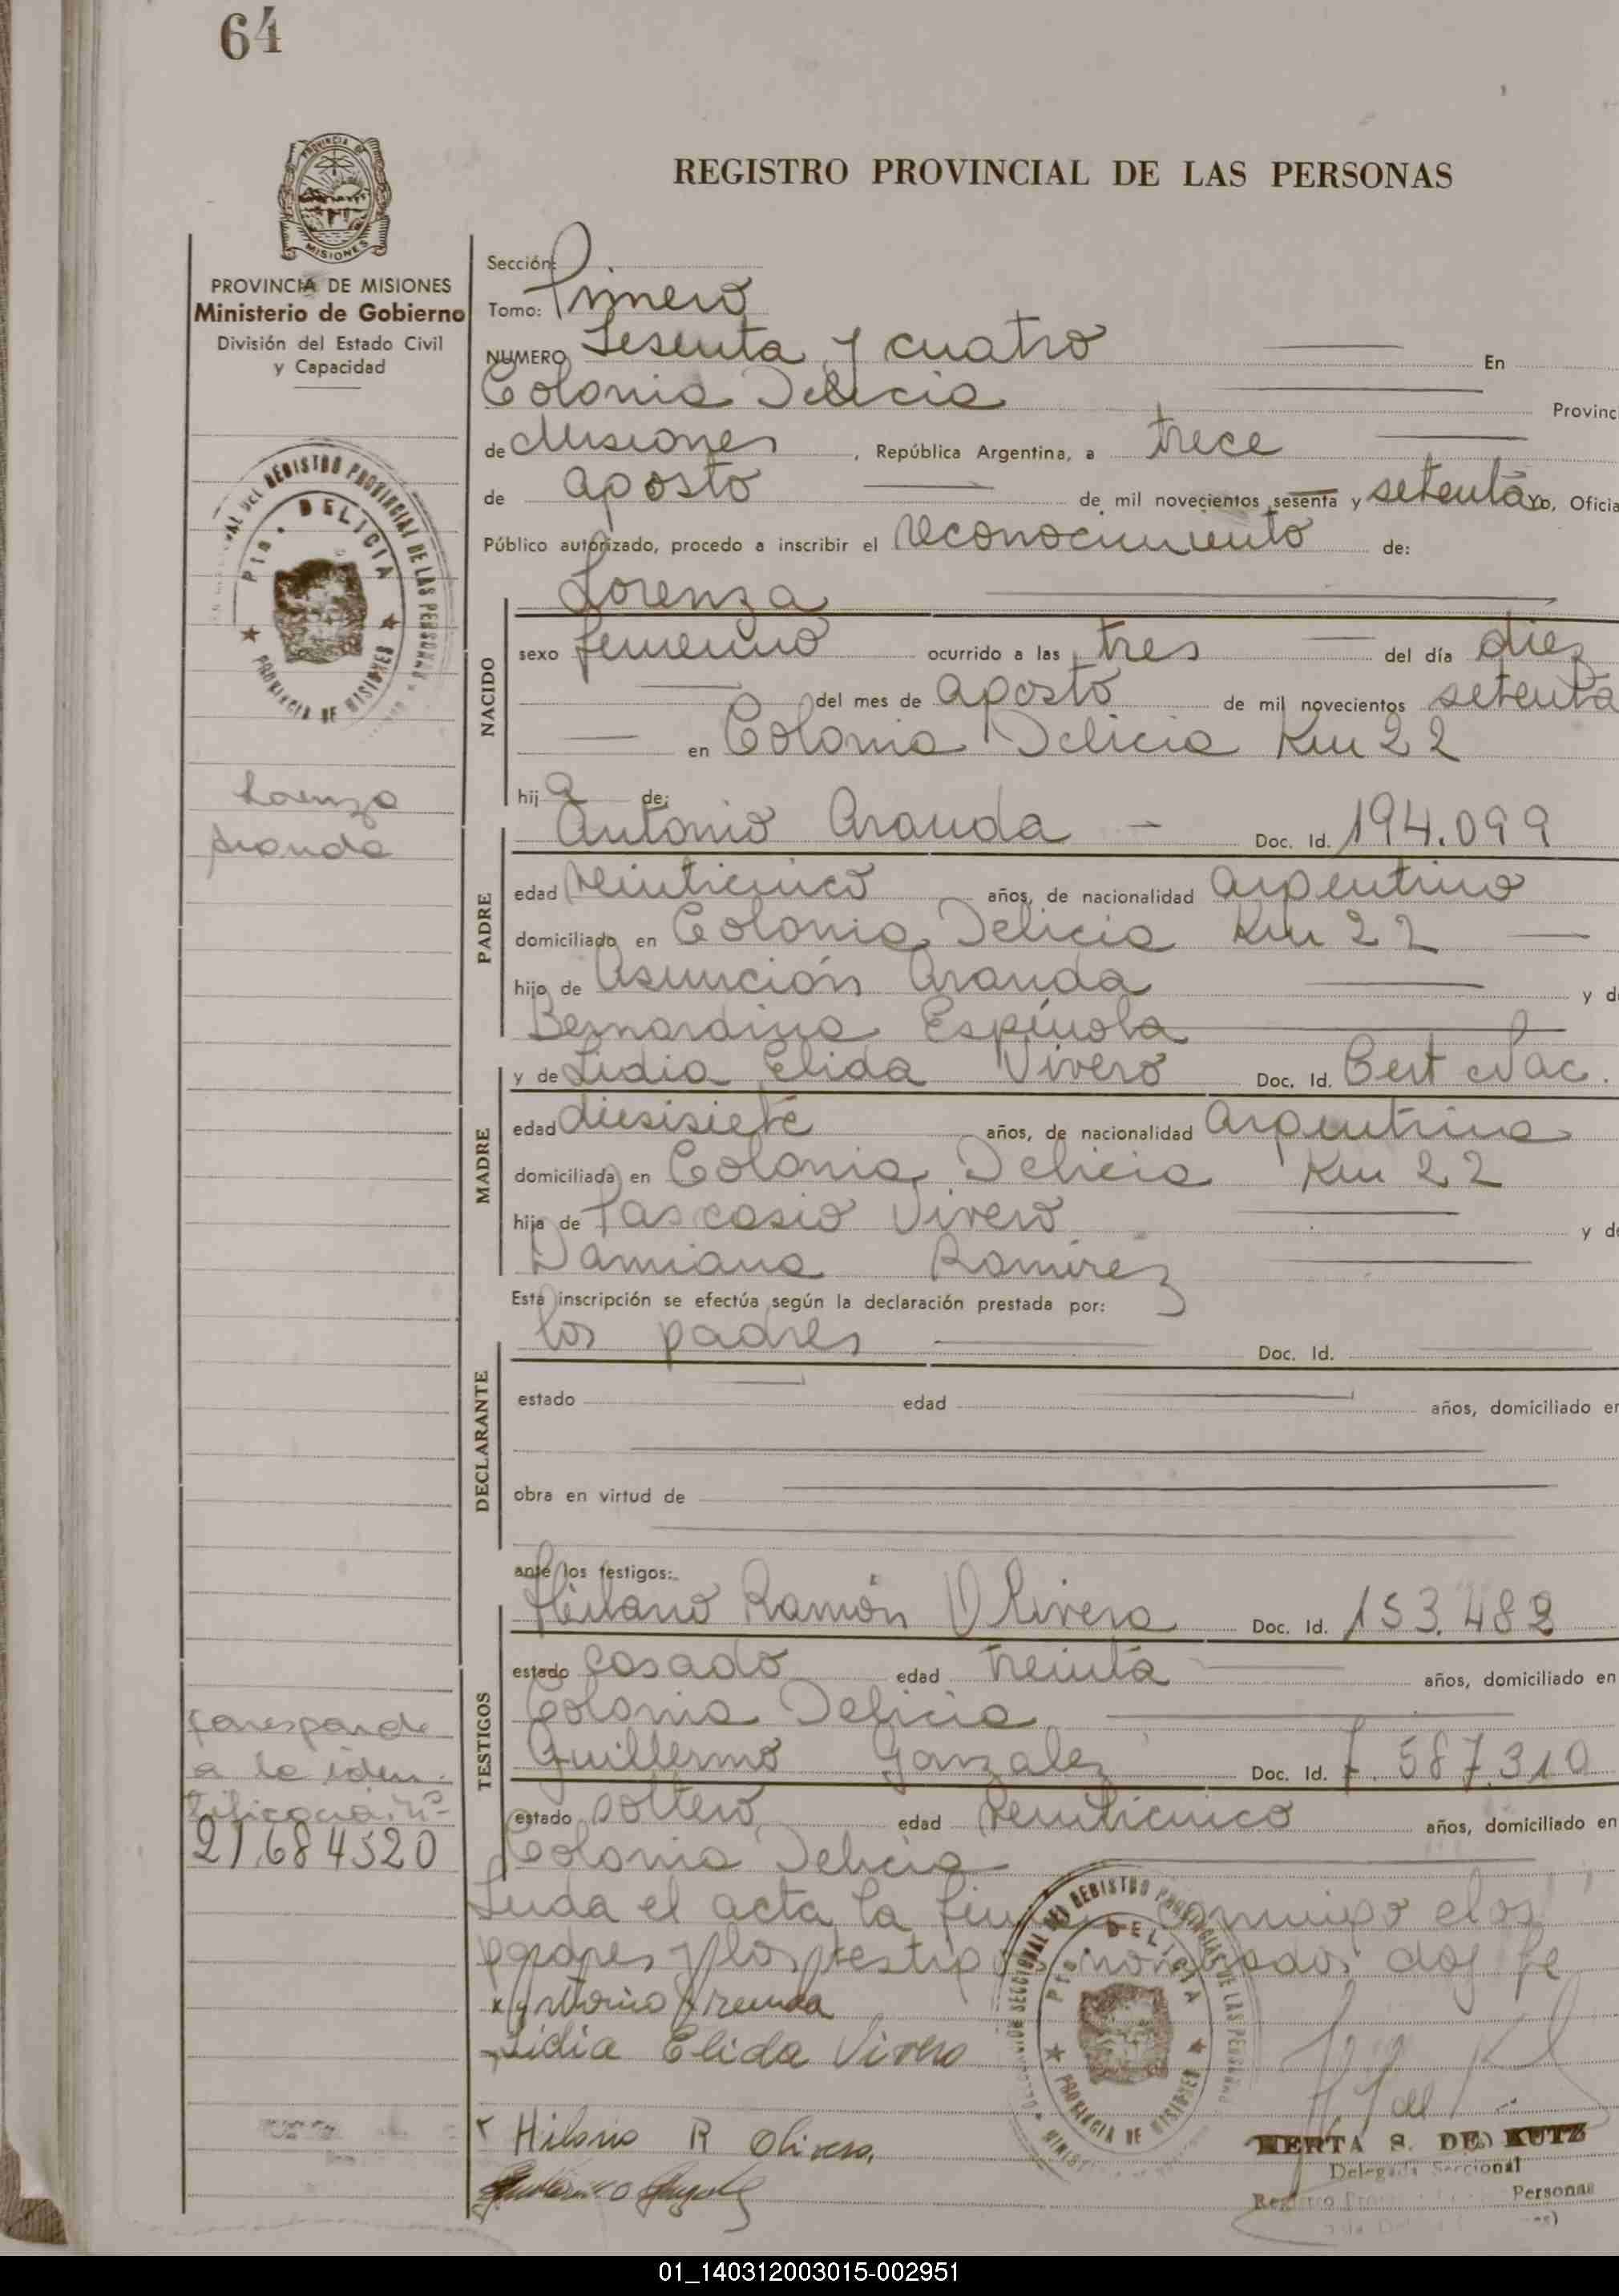 64
REGISTRO PROVINCIAL DE LAS PERSONAS
PROVINCIA DE MISIONES
Ministerio de Gobierno
División del Estado Civil
y Capacidad
Sección:
Tomo: Primero
NUMERO Sesenta y cuatro En
Colonia Delicia Provinc
de Misiones, República Argentina, a trece
de agosto de mil novecientos sesenta y setenta Yo, Oficia
Público autorizado, procedo a inscribir el reconocimiento de:
NACIDO
Lorenza
sexo femenino ocurrido a las tres del día diez
del mes de agosto de mil novecientos setenta
en Colonia Delicia Km 22
hija de:
Lorenza
Aranda
PADRE
Antonio Aranda Doc. Id. 194.099
edad veinticinco años, de nacionalidad argentino
domiciliado en Colonia Delicia Km 22
hijo de Asunción Aranda y d
Bernardina Espínola
MADRE
y de Lidia Elida Vivero Doc. Id. Cert Nac.
edad diesisiete años, de nacionalidad argentina
domiciliada en Colonia Delicia Km 22
hija de Pascasio Vivero y d
Damiana Ramírez
Esta inscripción se efectúa según la declaración prestada por:
DECLARANTE
los padres Doc. Id.
estado edad años, domiciliado en
obra en virtud de
ante los testigos:
TESTIGOS
Hilario Ramón Olivera Doc. Id. 153.482
estado casado edad treinta años, domiciliado en
Colonia Delicia
Guillermo Gonzalez Doc. Id. 7.587.310
estado soltero edad veinticinco años, domiciliado en
Colonia Delicia
corresponde
a la iden-
tificación nº
21.684520
Leida el acta la firman conmigo los
padres y los testigos nombrados doy fe
x Antonio Aranda
Lidia Elida Vivero
Hilario R Olivera
HERTA S. DE KUTZ
Delegada Seccional
Personas
PROVINCIA DE MISIONES
REGISTRO PROVINCIAL DE LAS PERSONAS
Pto. DELICIA
PROVINCIA DE MISIONES
01_140312003015-002951